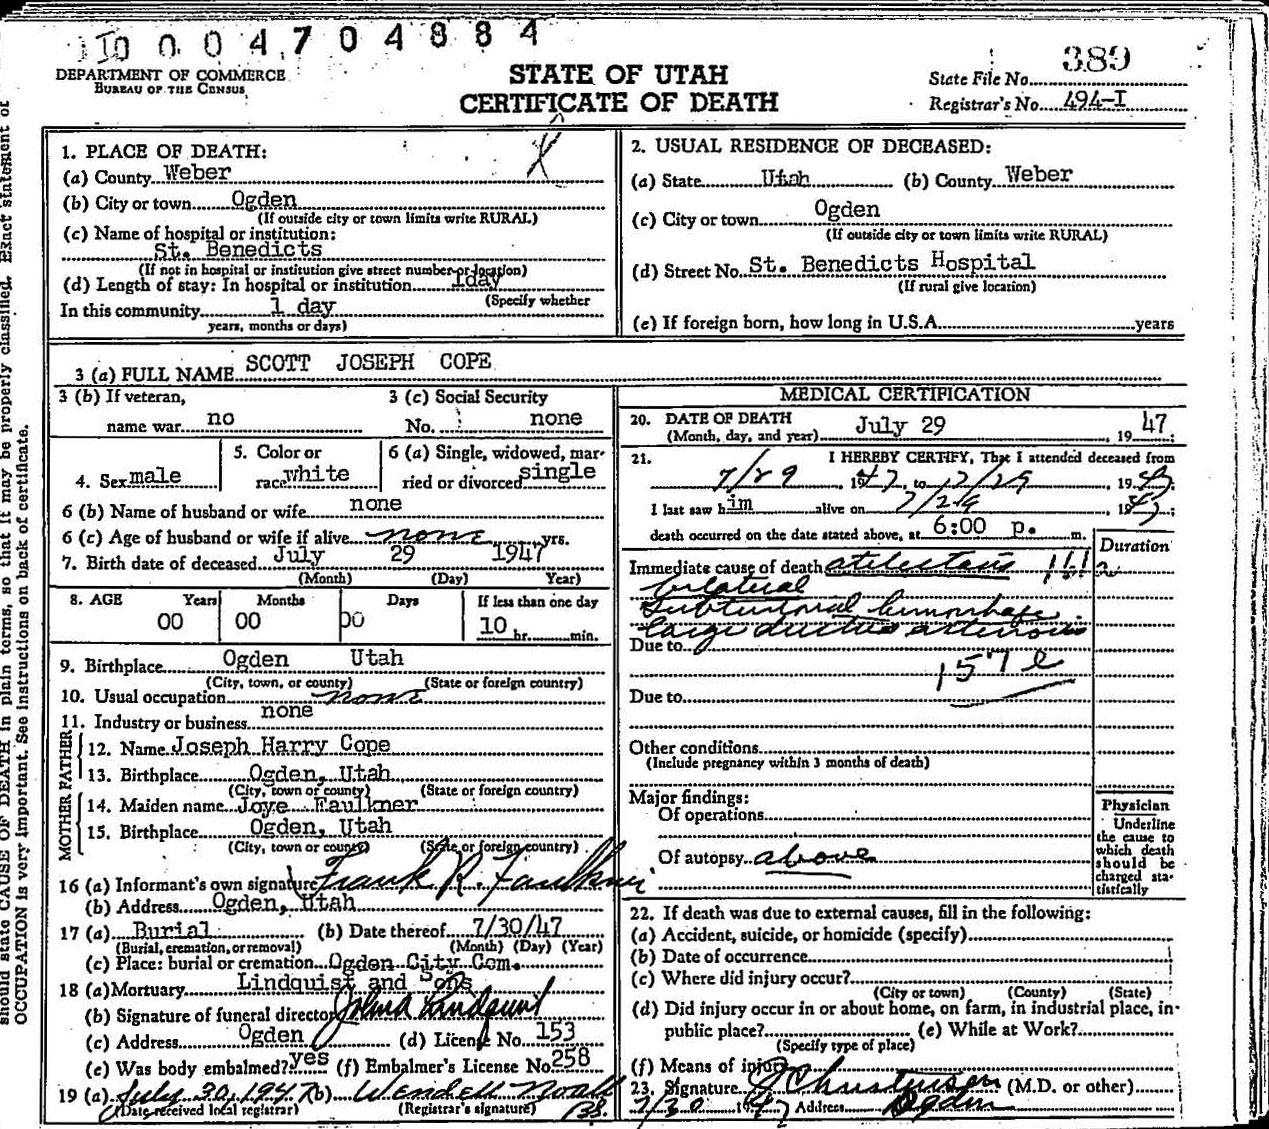 0004704884
DEPARTMENT OF COMMERCE
BUREAU OF THE CENSUS
STATE OF UTAH
CERTIFICATE OF DEATH
State File No. 389
Registrar's No. 494-I
should state CAUSE OF DEATH in plain terms, so that it may be properly classified. Exact statement of
OCCUPATION is very important. See instructions on back of certificate.
1. PLACE OF DEATH:
(a) County Weber
(b) City or town Ogden
(If outside city or town limits write RURAL)
(c) Name of hospital or institution:
St. Benedicts
(If not in hospital or institution give street number or location)
(d) Length of stay: In hospital or institution 1day
(Specify whether
In this community 1 day
years, months or days)
2. USUAL RESIDENCE OF DECEASED:
(a) State Utah (b) County Weber
(c) City or town Ogden
(If outside city or town limits write RURAL)
(d) Street No. St. Benedicts Hospital
(If rural give location)
(e) If foreign born, how long in U.S.A. years
3 (a) FULL NAME SCOTT JOSEPH COPE
3 (b) If veteran,
name war no
3 (c) Social Security
No. none
4. Sex male
5. Color or
race white
6 (a) Single, widowed, mar-
ried or divorced single
6 (b) Name of husband or wife none
6 (c) Age of husband or wife if alive none yrs.
7. Birth date of deceased July 29 1947
(Month) (Day) Year)
8. AGE Years Months Days If less than one day
00 00 00 10 hr. min.
9. Birthplace Ogden Utah
(City, town, or county) (State or foreign country)
10. Usual occupation none
11. Industry or business none
FATHER
12. Name Joseph Harry Cope
13. Birthplace Ogden, Utah
(City, town or county) (State or foreign country)
MOTHER
14. Maiden name Joye Faulkner
15. Birthplace Ogden, Utah
(City, town or county) (State or foreign country)
16 (a) Informant's own signature Frank R. Faulkner
(b) Address Ogden, Utah
17 (a) Burial (b) Date thereof 7/30/47
(Burial, cremation, or removal) (Month) (Day) (Year)
(c) Place: burial or cremation Ogden City Cem.
18 (a) Mortuary Lindquist and Sons
(b) Signature of funeral director Lindquist
(c) Address Ogden (d) License No. 153
(e) Was body embalmed? yes (f) Embalmer's License No. 258
19 (a) July 30, 1947 (b) Wendell Noall
(Date received local registrar) (Registrar's signature)
MEDICAL CERTIFICATION
20. DATE OF DEATH
(Month, day, and year) July 29, 1947
21. I HEREBY CERTIFY, That I attended deceased from
7/29, 1947, to 7/29, 1947
I last saw him alive on 7/29, 1947
death occurred on the date stated above, at 6:00 p. m.
Duration
Immediate cause of death atelectasis
bilateral
subtentorial hemorrhage
large ductus arteriosis
Due to
157 e
Due to
Other conditions
(Include pregnancy within 3 months of death)
Major findings:
Of operations
Of autopsy above
Physician
Underline
the cause to
which death
should be
charged sta-
tistically
22. If death was due to external causes, fill in the following:
(a) Accident, suicide, or homicide (specify)
(b) Date of occurrence
(c) Where did injury occur?
(City or town) (County) (State)
(d) Did injury occur in or about home, on farm, in industrial place, in-
public place? (e) While at Work?
(Specify type of place)
(f) Means of injury
23. Signature Christensen (M.D. or other)
7/30 1947 Address Ogden